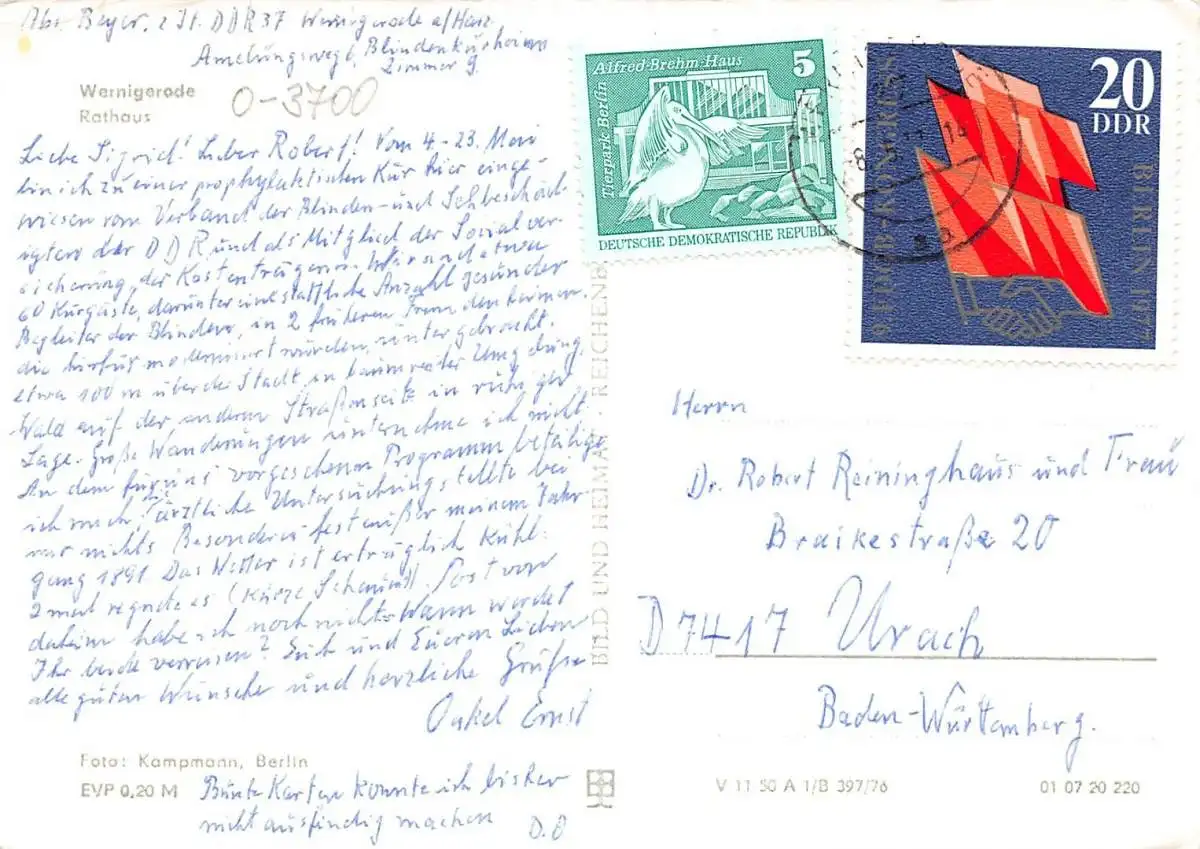 Abs. Beyer, z Zt. DDR 37 Wernigerode a/Harz
Amelungsweg 6, Blindenkurheim
Zimmer 9
Wernigerode
Rathaus
0-3700
Liebe Sigrid! Lieber Robert! Vom 4-23. Mai
bin ich zu einer prophylaktischen Kur hier einge-
wiesen vom Verband der Blinden- und Sehbeschä-
digten der DDR und als Mitglied der Sozialver-
sicherung, der Kostenträgerin. Wir sind etwa
60 Kurgäste, darunter eine stattliche Anzahl gesunder
Begleiter der Blinden, in 2 früheren Fremdenheimen,
die hierfür modernisiert wurden, untergebracht,
etwa 100 m über der Stadt, in baumreicher Umgebung,
Wald auf der anderen Straßenseite in ruhiger
Lage. Große Wanderungen unternehme ich nicht.
An dem für uns vorgesehenen Programm beteilige
ich mich, ärztliche Untersuchung stellte bei
mir nichts Besonderes fest außer meinem Jahr
gang 1891. Das Wetter ist erträglich kühl.
2 mal regnete es (kurze Schauer). Post von
daheim habe ich noch nicht. Wann werdet
Ihr beide verreisen? Euch und Euren Lieben
alle guten Wünsche und herzliche Grüße
Onkel Ernst
Foto: Kampmann, Berlin
EVP 0,20 M
Bunte Karten konnte ich bisher
nicht ausfindig machen
D. O
BILD UND HEIMAT REICHENB
Alfred-Brehm-Haus
5
Tierpark Berlin
DEUTSCHE DEMOKRATISCHE REPUBLIK
20
DDR
9. FDGB-KONGRESS
BERLIN 1977
Herrn
Dr. Robert Reininghaus und Frau
Braikestraße 20
D 7417 Urach
Baden-Württemberg.
V 11 50 A 1/B 397/76
01 07 20 220